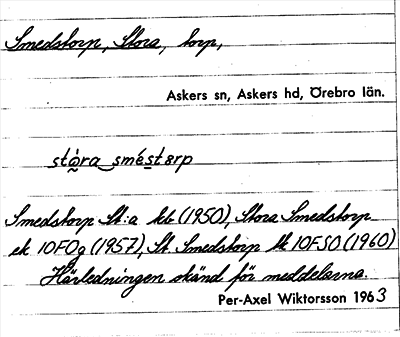 Smedstorp, Stora, torp,
Askers sn, Askers hd, Örebro län.
stòra smés̲tərp
Smedstorp St:a (1950), Stora Smedstorp
ek 10F0g (1957), St. Smedstorp 10FSO (1960)
Härledningen okänd för meddelarna.
Per-Axel Wiktorsson 1963